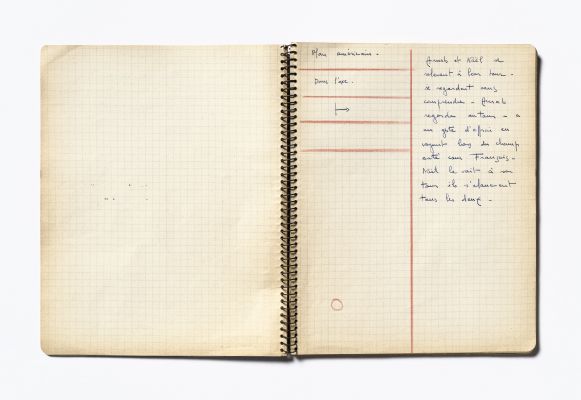 Plan américain.
Dans l'axe.
Arnab et Näel se
relèvent à leur tour.
se regardent sans
comprendre - Arnab
regarde autour - a
un geste d'effroi en
voyant hors du champ
côté cour François -
Näel le voit à son
tour ils s'élancent
tous les deux -